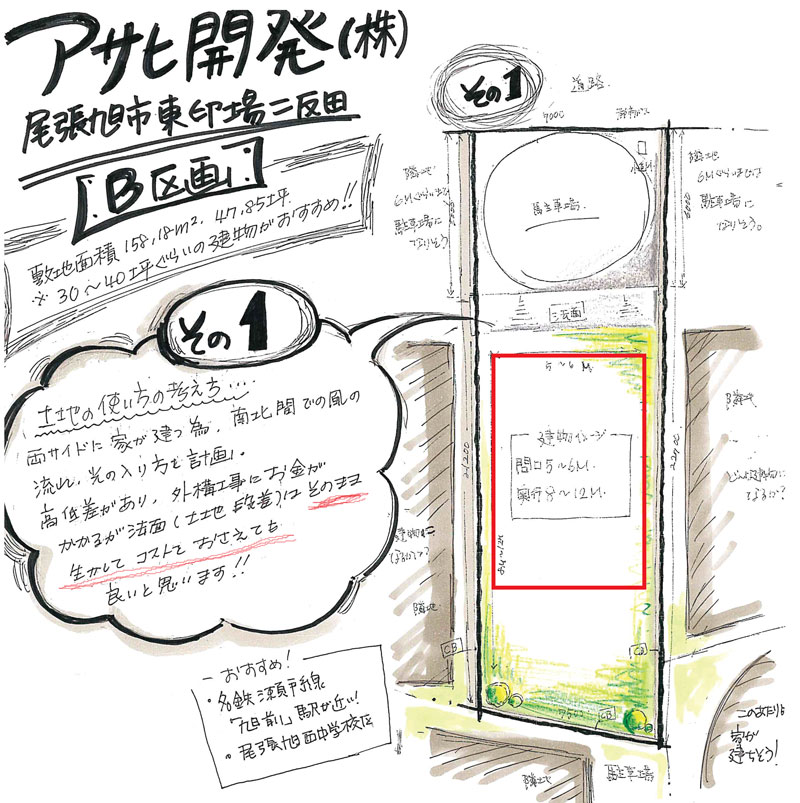 アサヒ開発(株)
尾張旭市東印場二反田
B区画
敷地面積 158.18m². 47.85坪
※ 30～40坪ぐらいの建物がおすすめ!!
その1
土地の使い方の考え方....
両サイドに家が建つ為、南北間での風の
流れ、その入り方を計画。
高低差があり、外構工事にお金が
かかるが法面(土地段差)はそのまま
生かしてコストをおさえても
良いと思います!!
おすすめ!
・名鉄瀬戸線
「旭前」駅が近い!
・尾張旭西中学校区
その1
道路
7000
隣地
6Mぐらいまで
駐車場に
なりそう
駐車場
隣地
6Mぐらいまで
駐車場に
なりそう。
5～6M
建物イメージ
間口5～6M.
奥行8～12M.
8M～12M
21200
隣地
隣地
CB
CB
CB
7500
隣地
駐車場
このあたりも
家が
建ちそう!